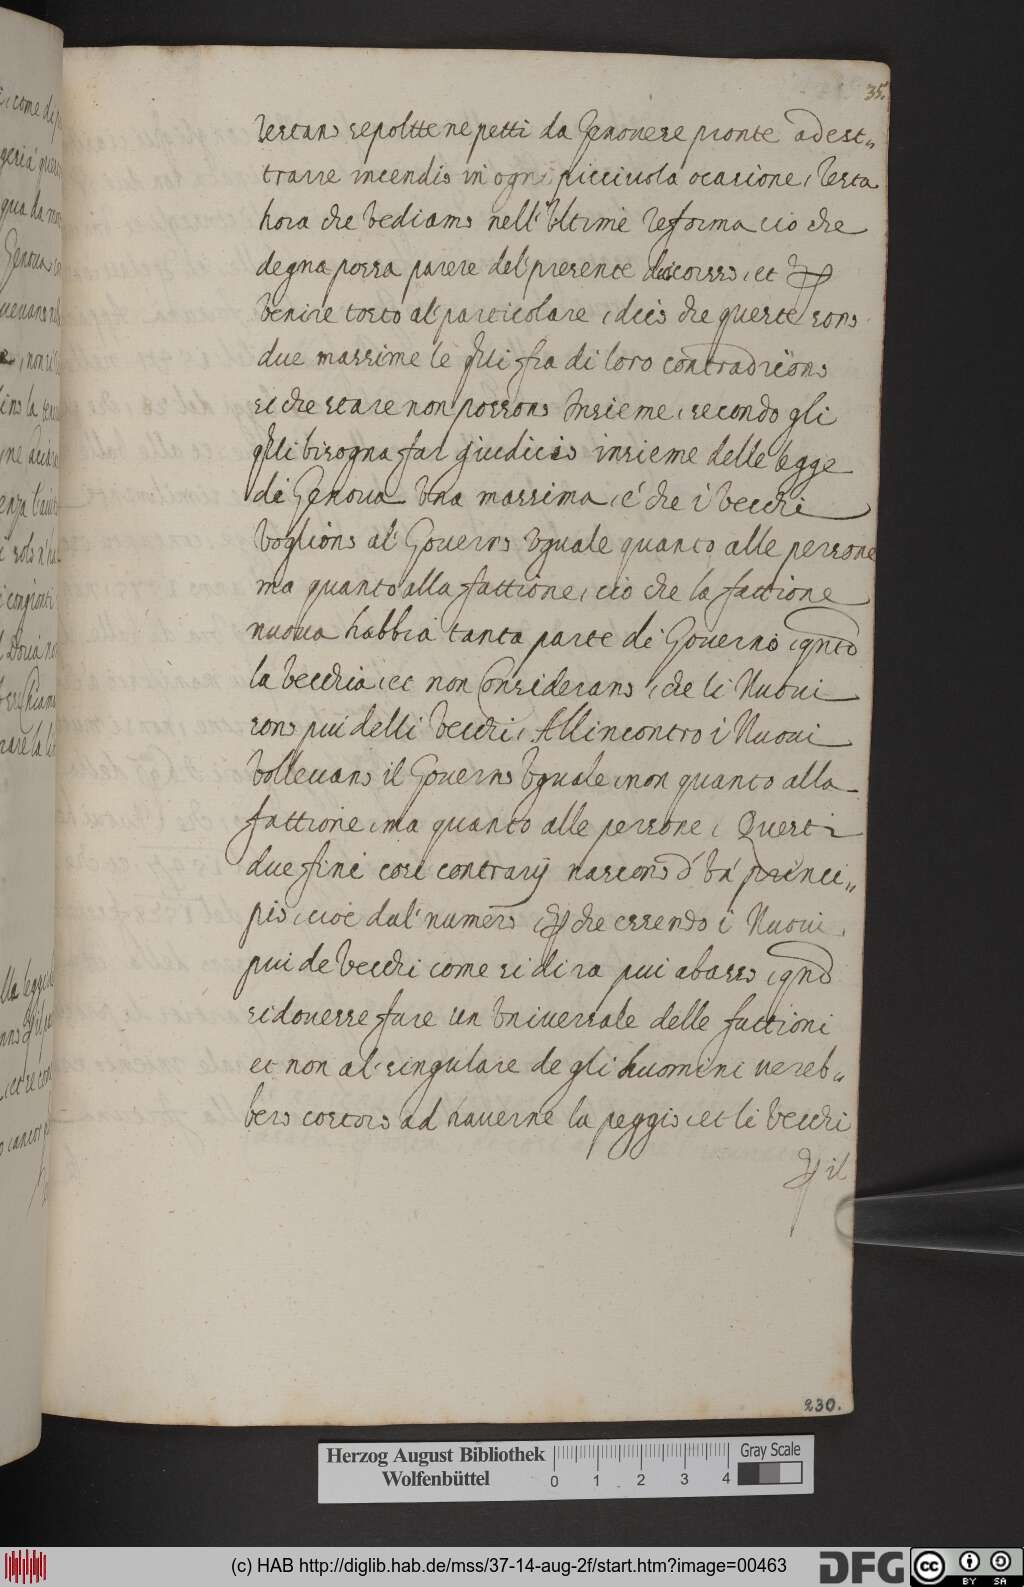 35.
restano sepoltte ne petti da Genovese pronte ad est„
trarre incendio in ogni picciuola ocasione, Resta
hora che vediamo nell'Ultime Reforma ciò che
degna possa parere del presente discorso, et
venire tosto al particolare, dico che queste sono
due massime le quali fra di loro contradricono
si che stare non possono insieme, secondo gli
quali bisogna far giudicio insieme delle legge
di Genova Una massima, é che i Vecchi
Vogliono al Governo Vguale quanto alle persone
ma quanto alla fattione, ciò che la fattione
nuova habbia tanta parte di Governo, qnto
la Vecchia, et non Considerano, che li Nuovi
sono piu delli Vecchi, All incontro i Nuovi
Vollevano il Governo Vguale, non quanto alla
fattione, ma quanto alle persone, Questi
due fini cosi contrarij nascono d'Un' princi„
pio, cioé dal numero, che essendo i Nuovi
piu de Vecchi come si dira piu abasso, qnd
si dovesse fare un Vniversale delle fattioni
et non al singulare de gli huomini vereb„
bero costoro ad haverne la peggio, et li Vecchi
il
230.
Herzog August Bibliothek
Wolfenbüttel
0 1 2 3 4
Gray Scale
(c) HAB http://diglib.hab.de/mss/37-14-aug-2f/start.htm?image=00463
DFG
cc
BY SA